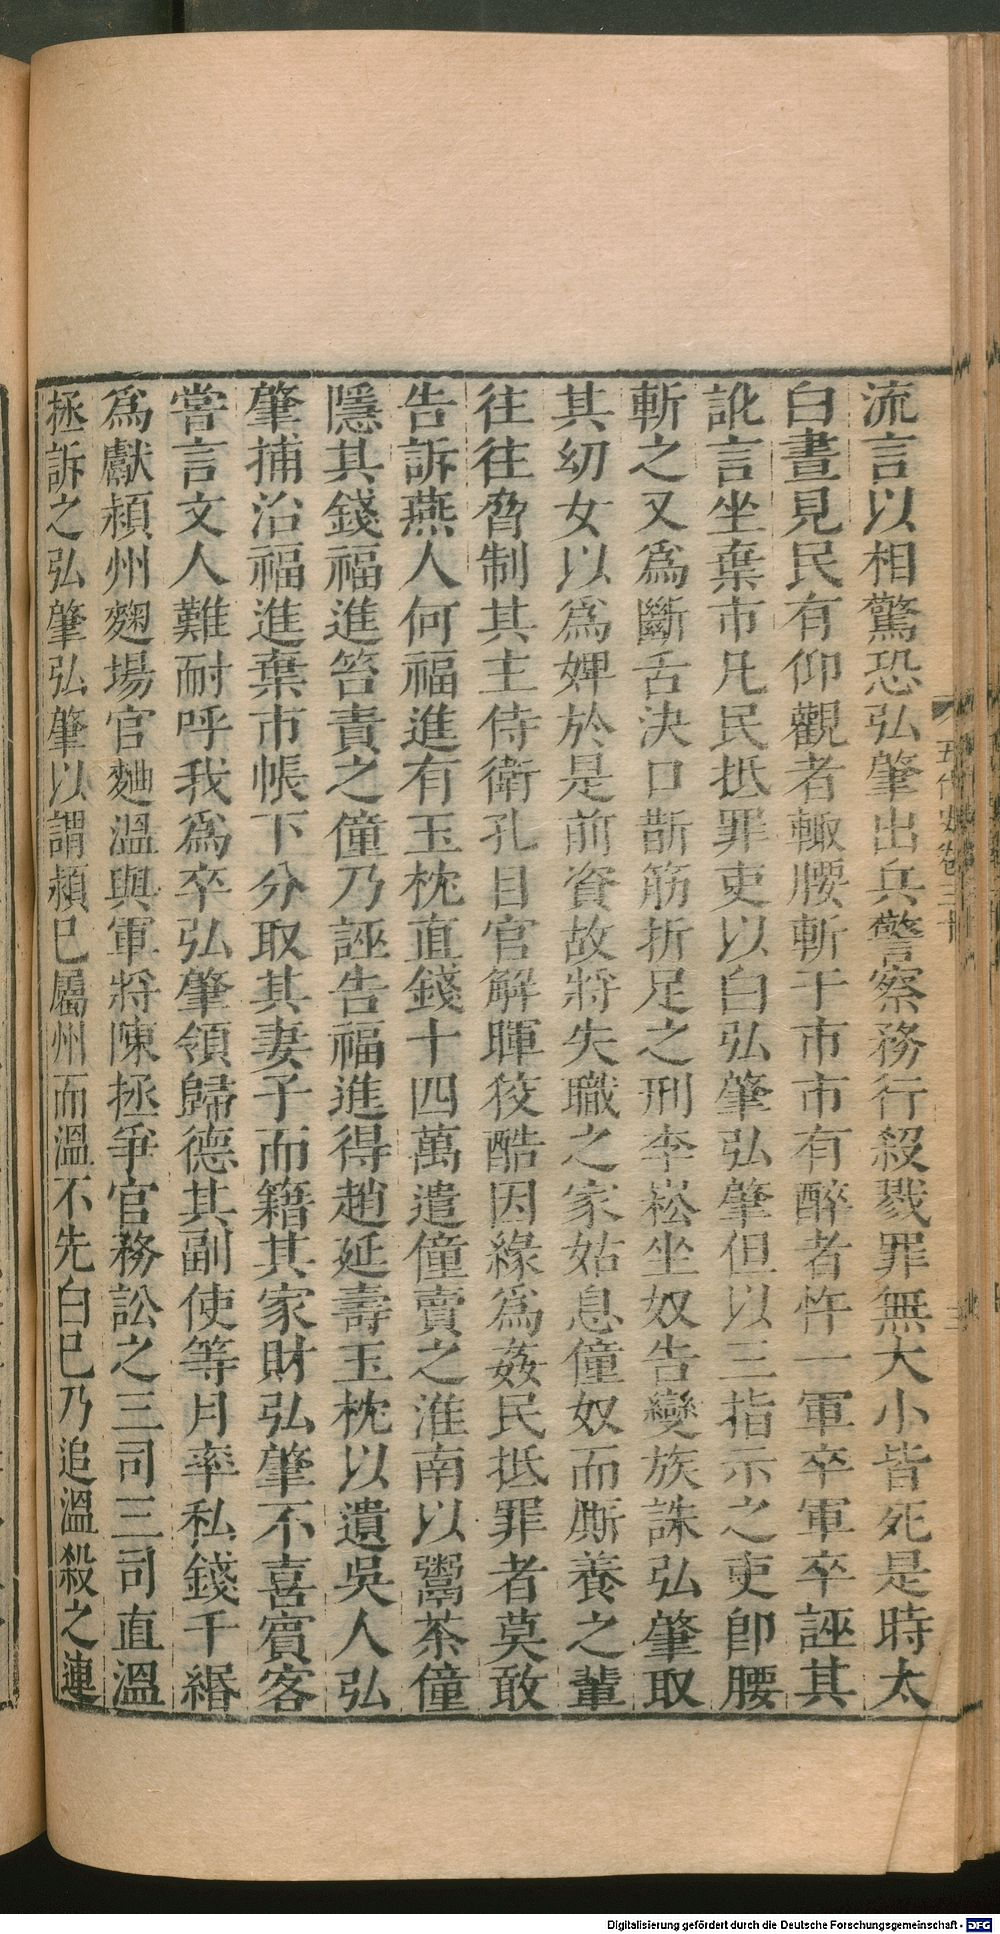 流言以相驚恐弘肇出兵警察務行殺戮罪無大小皆死是時太
白晝見民有仰觀者輙腰斬于市市有醉者忤一軍卒軍卒誣其
訛言坐棄市凡民抵罪吏以白弘肇弘肇但以三指示之吏卽腰
斬之又爲斷舌決口斮筋折足之刑李崧坐奴告變族誅弘肇取
其幼女以爲婢於是前資故將失職之家姑息僮奴而厮養之輩
往往脅制其主侍衛孔目官解暉狡酷因緣爲姦民抵罪者莫敢
告訴燕人何福進有玉枕直錢十四萬遣僮賣之淮南以鬻茶僮
隱其錢福進笞責之僮乃誣告福進得趙延壽玉枕以遺吳人弘
肇捕治福進棄市帳下分取其妻子而籍其家財弘肇不喜賓客
嘗言文人難耐呼我爲卒弘肇領歸德其副使等月率私錢千緡
爲獻潁州麴場官麴溫與軍將陳拯爭官務訟之三司三司直溫
拯訴之弘肇弘肇以謂潁已屬州而溫不先白已乃追溫殺之連
五代史卷三十
Digitalisierung gefördert durch die Deutsche Forschungsgemeinschaft - DFG